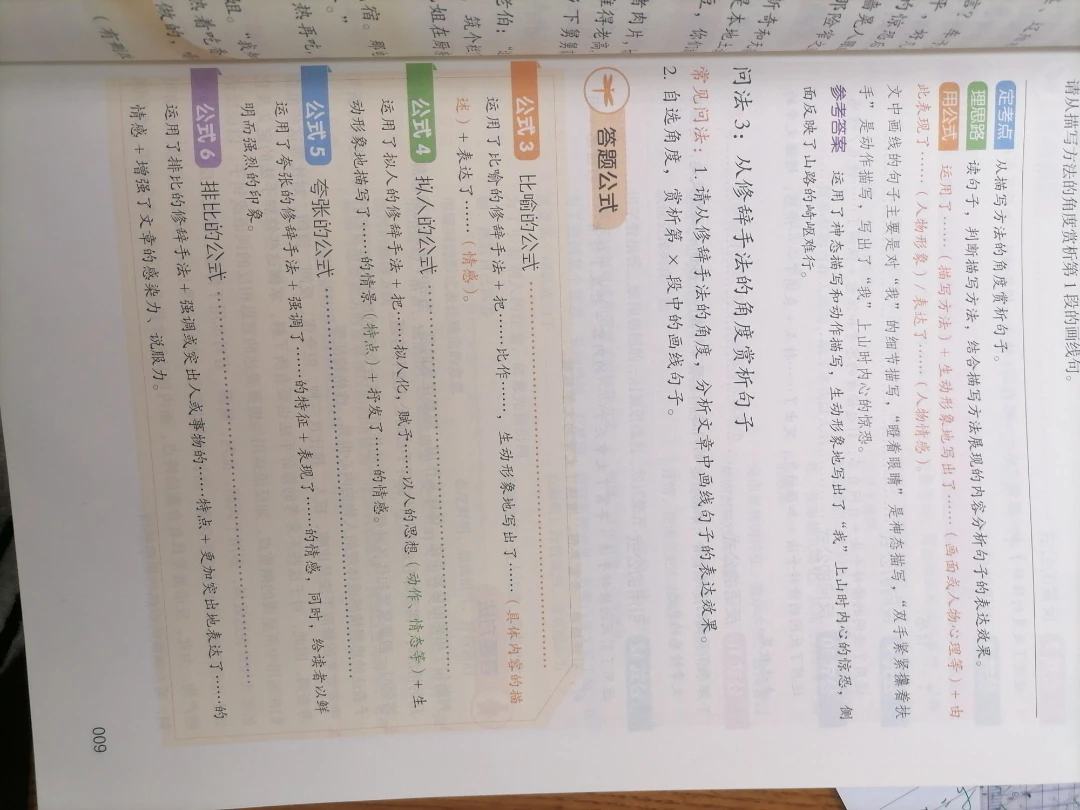 请从描写方法的角度赏析第1段的画线句。
定考点 从描写方法的角度赏析句子。
理思路 读句子，判断描写方法，结合描写方法展现的内容分析句子的表达效果。
用公式 运用了……（描写方法）+生动形象地写出了……（画面或人物心理等）+由
此表现了……（人物形象）/表达了……（人物情感）。
文中画线的句子主要是对“我”的细节描写，“瞪着眼睛”是神态描写，“双手紧紧攥着扶
手”是动作描写，写出了“我”上山时内心的惊恐。
参考答案 运用了神态描写和动作描写，生动形象地写出了“我”上山时内心的惊恐，侧
面反映了山路的崎岖难行。
问法3：从修辞手法的角度赏析句子
常见问法：1. 请从修辞手法的角度，分析文章中画线句子的表达效果。
2. 自选角度，赏析第×段中的画线句子。
答题公式
公式3 比喻的公式
运用了比喻的修辞手法+把……比作……，生动形象地写出了……（具体内容的描
述）+表达了……（情感）。
公式4 拟人的公式
运用了拟人的修辞手法+把……拟人化，赋予……以人的思想（动作、情态等）+生
动形象地描写了……的情景（特点）+抒发了……的情感。
公式5 夸张的公式
运用了夸张的修辞手法+强调了……的特征+表现了……的情感，同时，给读者以鲜
明而强烈的印象。
公式6 排比的公式
运用了排比的修辞手法+强调或突出人或事物的……特点+更加突出地表达了……的
情感+增强了文章的感染力、说服力。
009